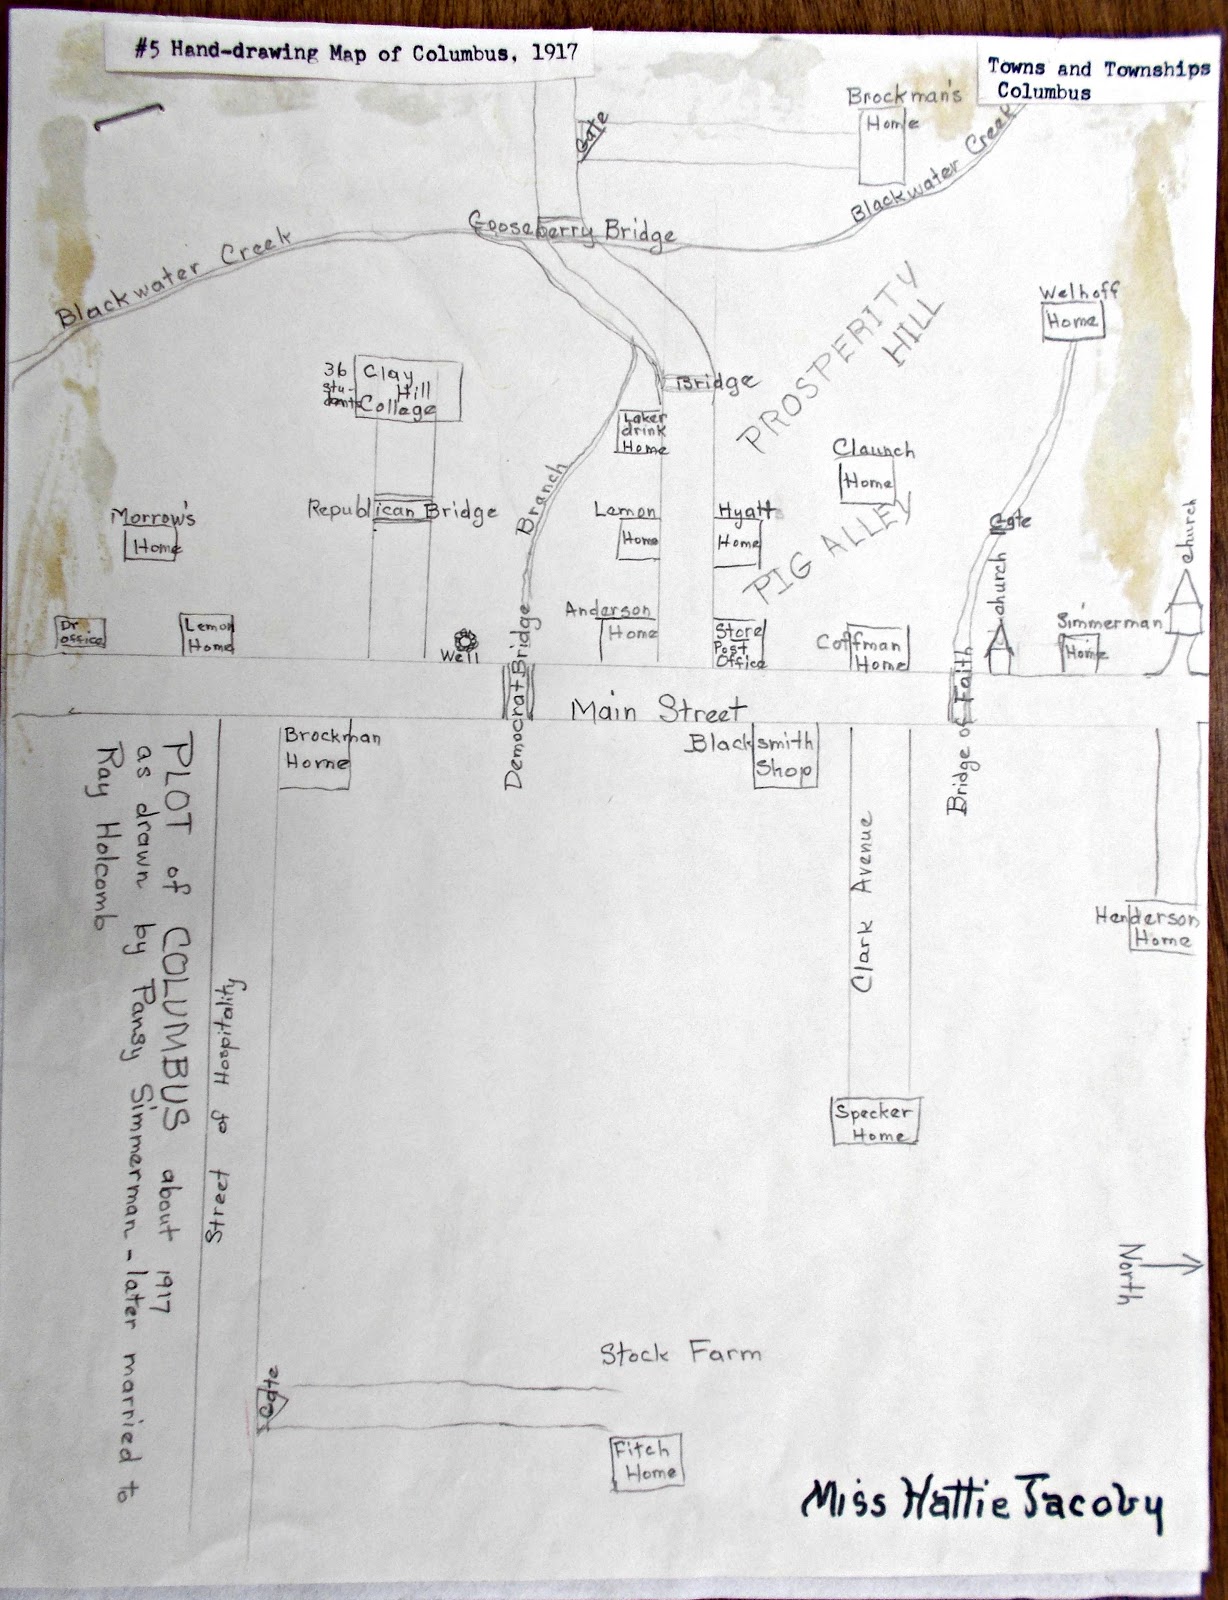 #5 Hand-drawing Map of Columbus, 1917
Towns and Townships
Columbus
Brockman's
Home
Gate
Blackwater Creek
Gooseberry Bridge
Blackwater Creek
PROSPERITY
HILL
Welhoff
Home
36
Stu-
dents
Clay
Hill
College
Bridge
Laker
drink
Home
Claunch
Home
Branch
Republican Bridge
Morrow's
Home
Lemon
Home
Hyatt
Home
PIG ALLEY
Gate
church
church
Dr
office
Lemon
Home
Well
Anderson
Home
Store
Post
Office
Coffman
Home
Simmerman
Home
Democrat Bridge
Main Street
Bridge of Faith
Brockman
Home
Blacksmith
Shop
Clark Avenue
Henderson
Home
PLOT of COLUMBUS about 1917
as drawn by Pansy Simmerman - later married to
Ray Holcomb
Street of Hospitality
Specker
Home
North
Stock Farm
Gate
Fitch
Home
Miss Hattie Jacoby